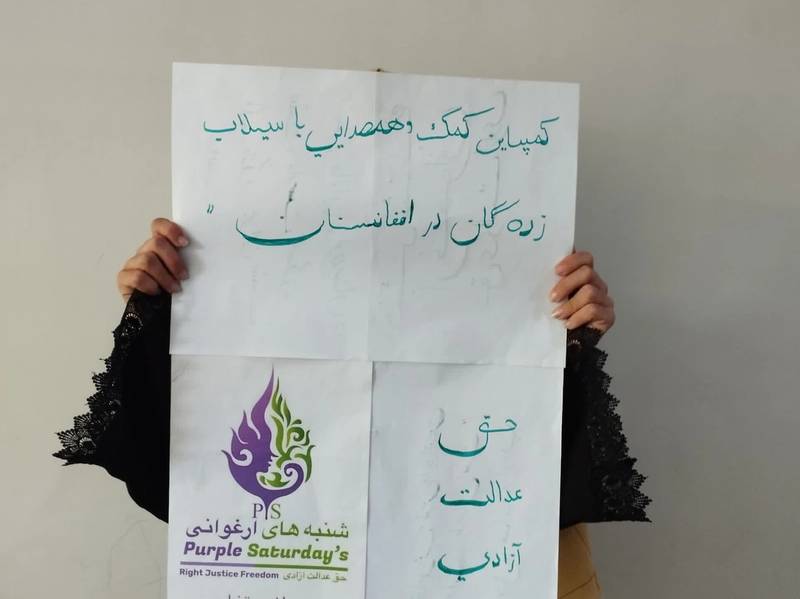 کمپاین کمک وهمصدایي با سیلاب
زده گان در افغانستان "
حق
عدالت
آزادي
PS
شنبه های ارغوانی
Purple Saturday's
Right Justice Freedom حق عدالت آزادی